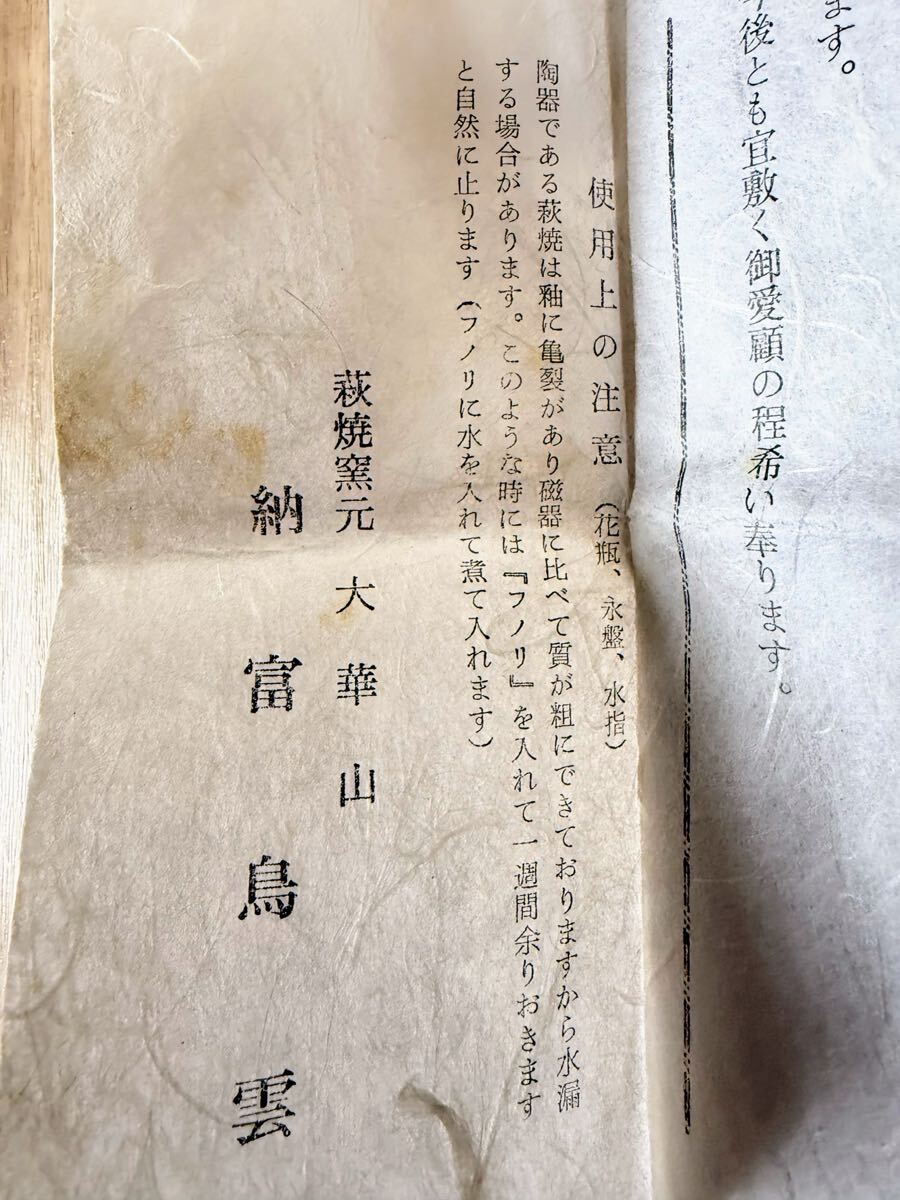 ます。
後とも宜敷く御愛顧の程希い奉ります。
使用上の注意(花瓶、水盤、水指)
陶器である萩焼は釉に亀裂があり磁器に比べて質が粗にできておりますから水漏
する場合があります。このような時には『フノリ』を入れて一週間余りおきます
と自然に止ります(フノリに水を入れて煮て入れます)
萩焼窯元 大華山
納富鳥雲